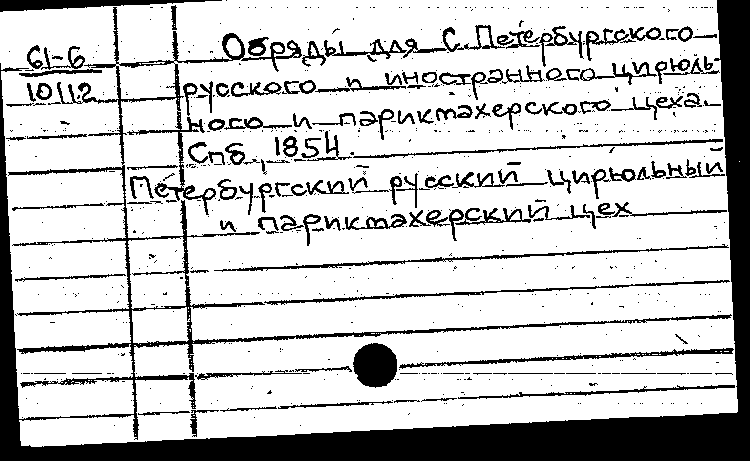 61-6
10112
Обряды для С.Петербургского
русского и иностранного цирюль-
ного и парикмахерского цеха.
Спб., 1854.
Петербургский русский цирюльный
и парикмахерский цех